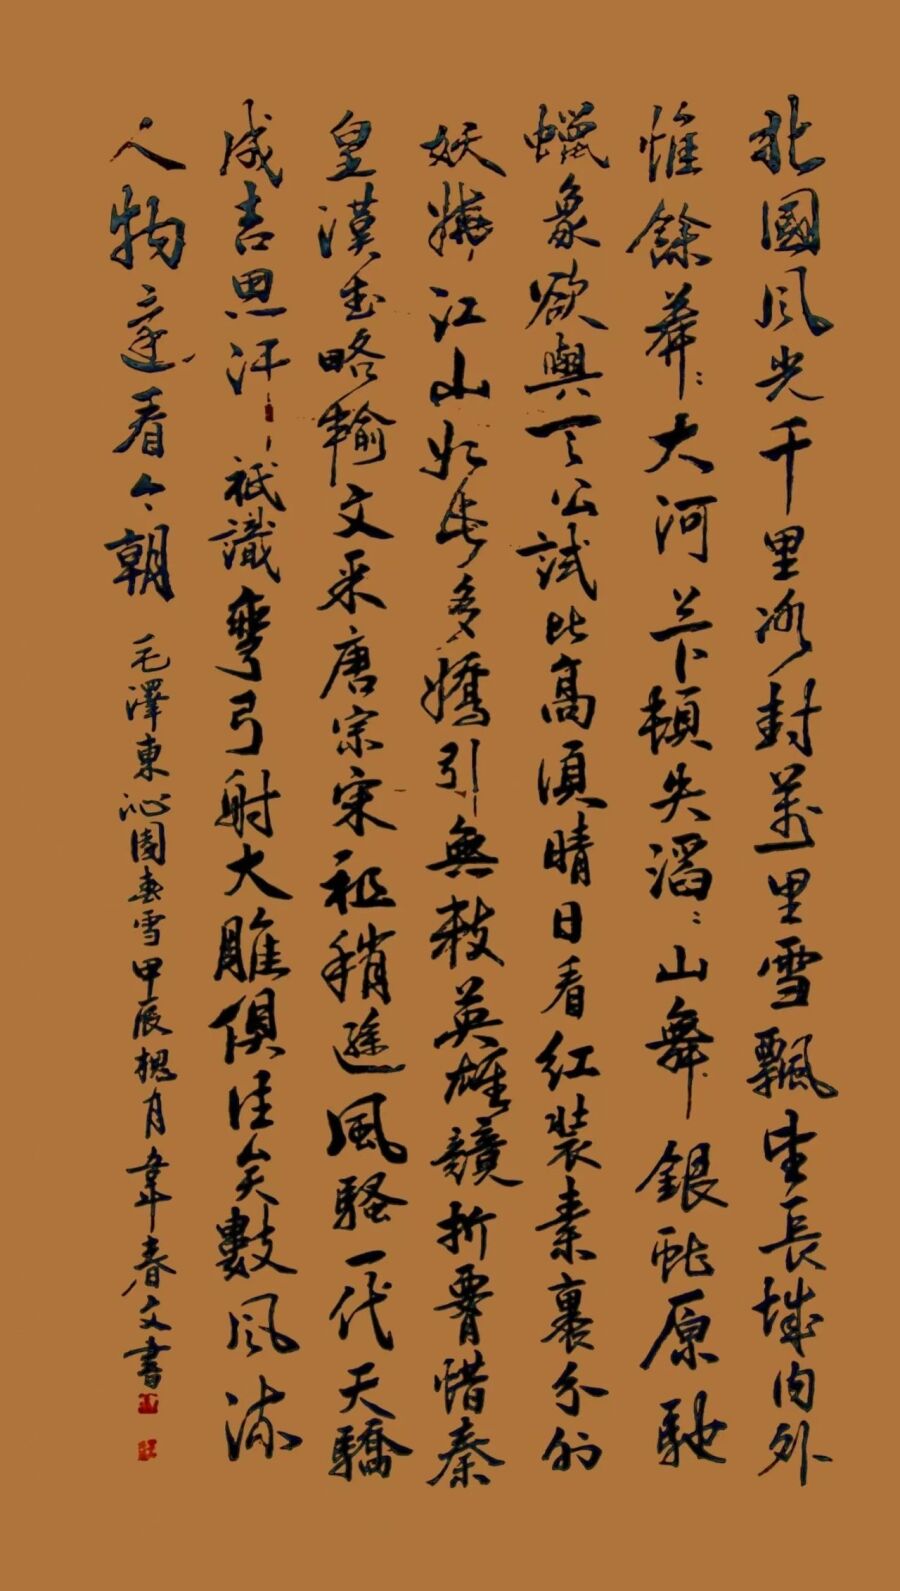 北國風光千里冰封萬里雪飄望長城内外
惟餘莽〻大河上下頓失滔〻山舞銀蛇原馳
蠟象欲與天公試比高須晴日看紅裝素裹分外
妖嬈江山如此多嬌引無數英雄競折腰惜秦
皇漢武略輸文采唐宗宋祖稍遜風騷一代天驕
成吉思汗祇識彎弓射大雕俱往矣數風流
人物還看今朝 毛澤東沁園春雪甲辰槐月韋春文書